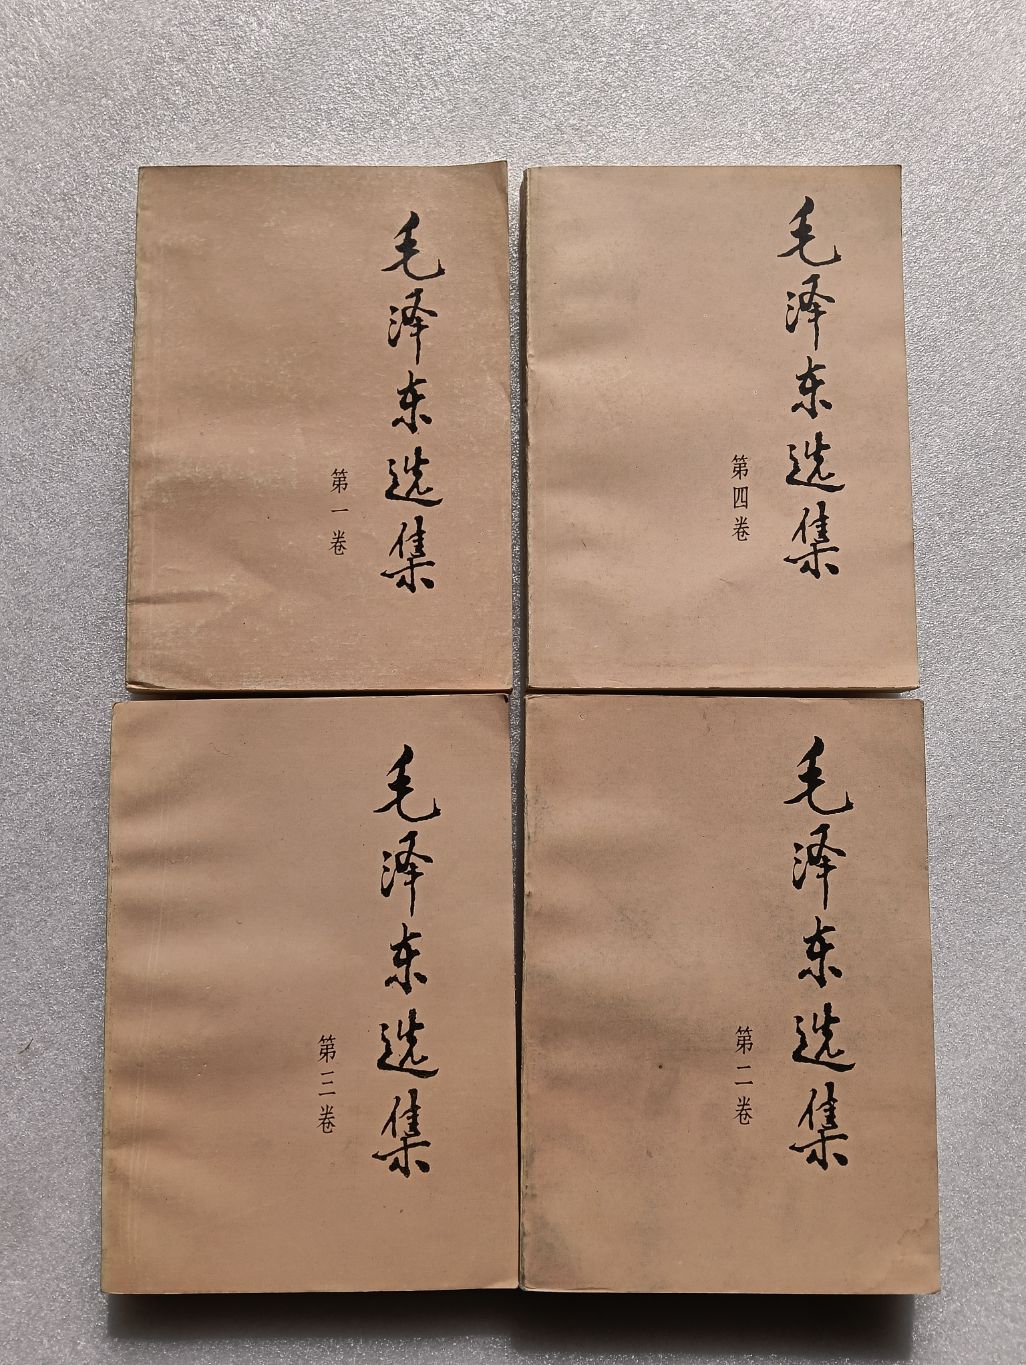 毛泽东选集
第一卷
毛泽东选集
第四卷
毛泽东选集
第三卷
毛泽东选集
第二卷